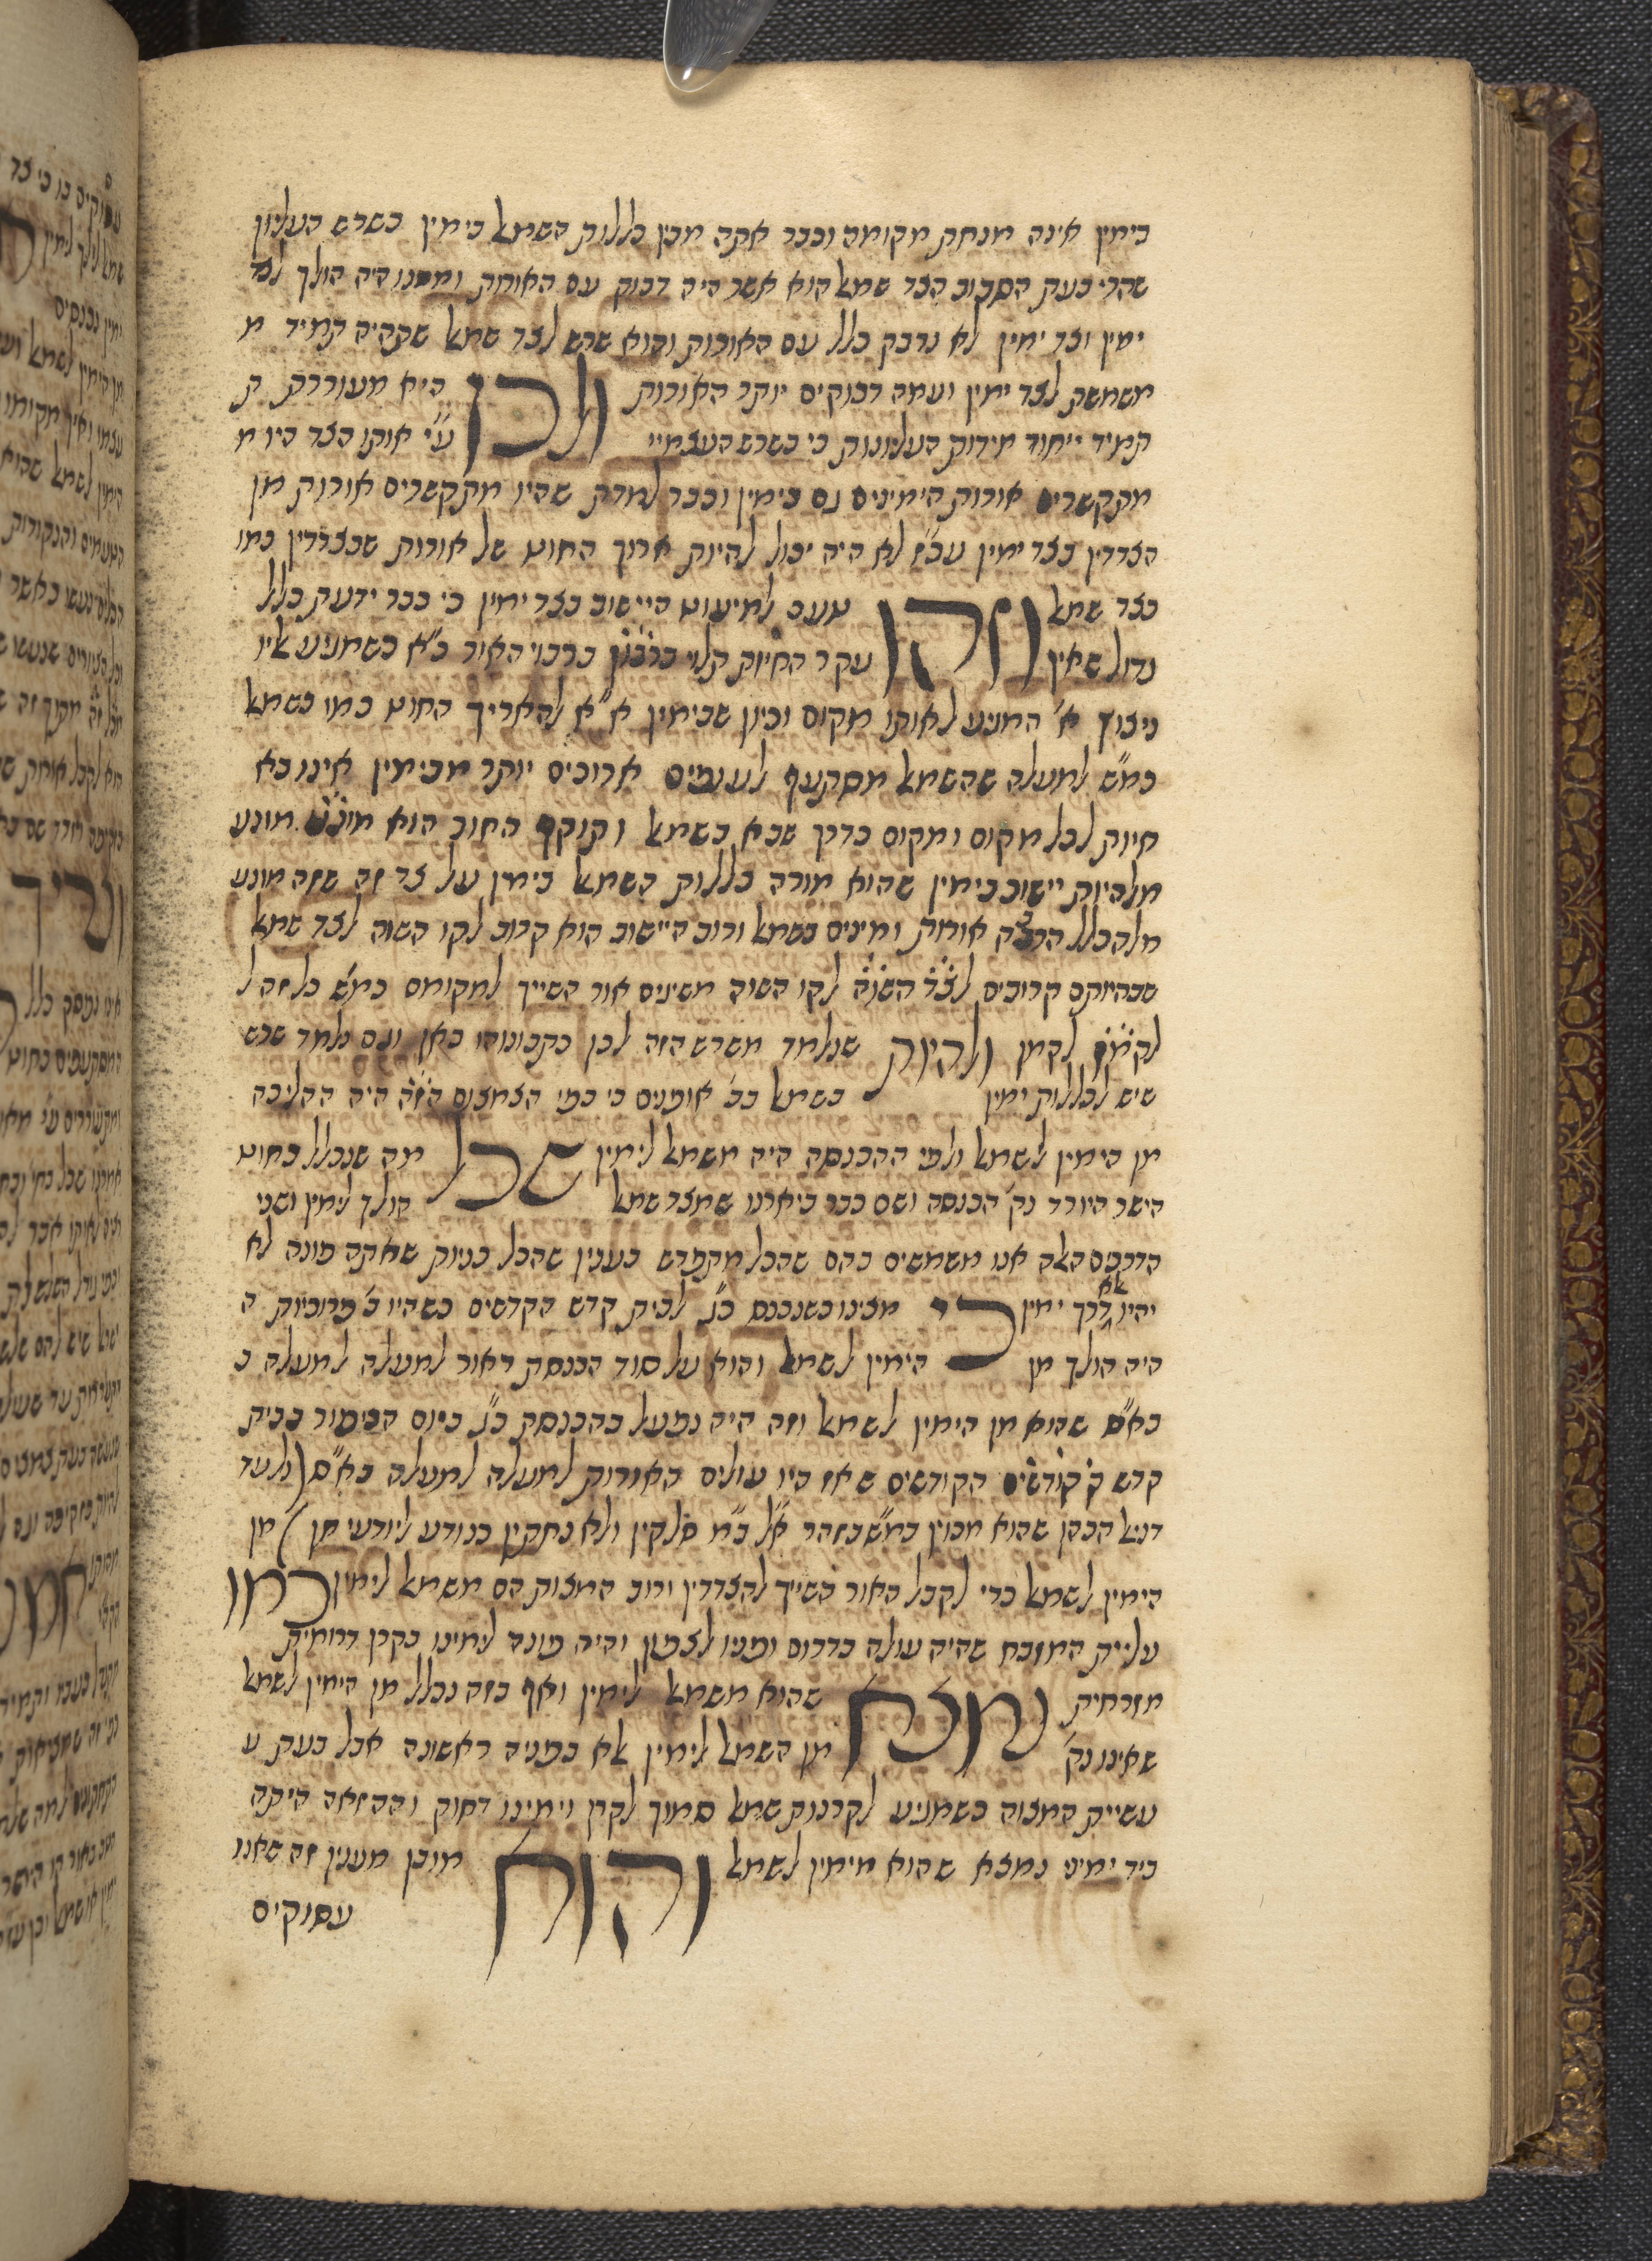 בימין אינה מנחת מקומה וכבר אתה מבין כללות השמאל בימין בשרש העליון
שהרי בעת הסבוב הצד שמאל הוא אשר היה דבוק עם האורות וממנו היה הולך לצד
ימין וצד ימין לא נדבק כלל עם האורות והוא שרש לצד שמאל שתהיה תמיד מ
משמשת לצד ימין ועמה דבוקים יותר האורות ולכן היא מעוררת ת
תמיד ייחוד מידות העליונות כי בשרש העצמיי ע״י אותו הצד היו מ
מתקשרים אורות הימינים גם בימין וכבר למדת שהיו מתקשרים אורות מן
הצדדין בצד ימין עכ״ז לא היה יכול להיות ארוך החוט של אורות שבצדדין כמו
בצד שמאל וזהו טעם למיעוט היישוב בצד ימין כי כבר ידעת כלל
גדול שאין עקר החיות תלוי ברבוי האור כ״א כשמגיע אליו
ניצוץ א׳ המגיע לאותו מקום וכיון שבימין א״א להאריך החוט כמו בשמאל
כמ״ש למעלה שהשמאל מסתעף לענפים ארוכים יותר מבימין אינו בא
חיות לכל מקום ומקום כדרך שבא בשמאל ותוקף החום הוא מונע
מלהיות יישוב בימין שהוא מורה כללות השמאל בימין על צד זה שזה מונע
מלהכלל הרבה אורות ומינים בשמאל ורוב היישוב הוא קרוב לקו השוה לצד שמאל
שבהיותם קרובים לקו השוה משיגים אור השייך למקומם כמ״ש כל זה ל
לקמן ולהיות שנלמד משרש הזה לכן כתבונוהו כאן וגם נלמד שרש
שיש לכללות ימין בשמאל בב׳ אופנים כי כפי הצמצום היה ההליכה
מן הימין לשמאל ולפי ההכנסה היה משמאל לימין שכל מה שנכלל בחוט
הישר היורד נק׳ הכנסה ושם כבר ביארנו שמצד שמאל הולך לימין ושני
הדרכים האלה אנו משמשים בהם שהכל מקודש כענין שהכל פניות שאתה פונה לא
יהיו אלא דרך ימין כי מצינו כשנכנס כ״ג לבית קדש הקדשים כשהיו ב׳ פרוכיות ה
היה הולך מן הימין לשמאל והוא על סוד הכנסת האור למעלה למעלה ב
בא״ס שהוא מן הימין לשמאל וזה היה נפעל בהכנסת כ״ג ביום הכיפור בבית
קדש הקודשים שאז היו עולים האורות למעלה למעלה בא״ס (ולעד
דגם הכהן שהוא מכוין כמ״ש בזהר א״ל כ״מ סלקין ולא נחתין כנודע ליודעי חן) מן
הימין לשמאל כדי לקבל האור השייך להצדדין ורוב המצות הם משמאל לימין כמו
עליית המזבח שהיה עולה בדרום ופניו לצפון והיה פונה לימינו בקרן דרומית
מזרחית נמצא שהוא משמאל לימין ואף בזה נכלל מן הימין לשמאל
שאינו נק׳ מן השמאל לימין אלא בפניה ראשונה אבל בעת ע
עשיית המצוה כשמגיע לקרנות שמאל סמוך לקרן וימינו רחוק וההזאה היתה
ביד ימיני נמצא שהוא מימין לשמאל והוא מובן מענין זה שאנו
עסוקים